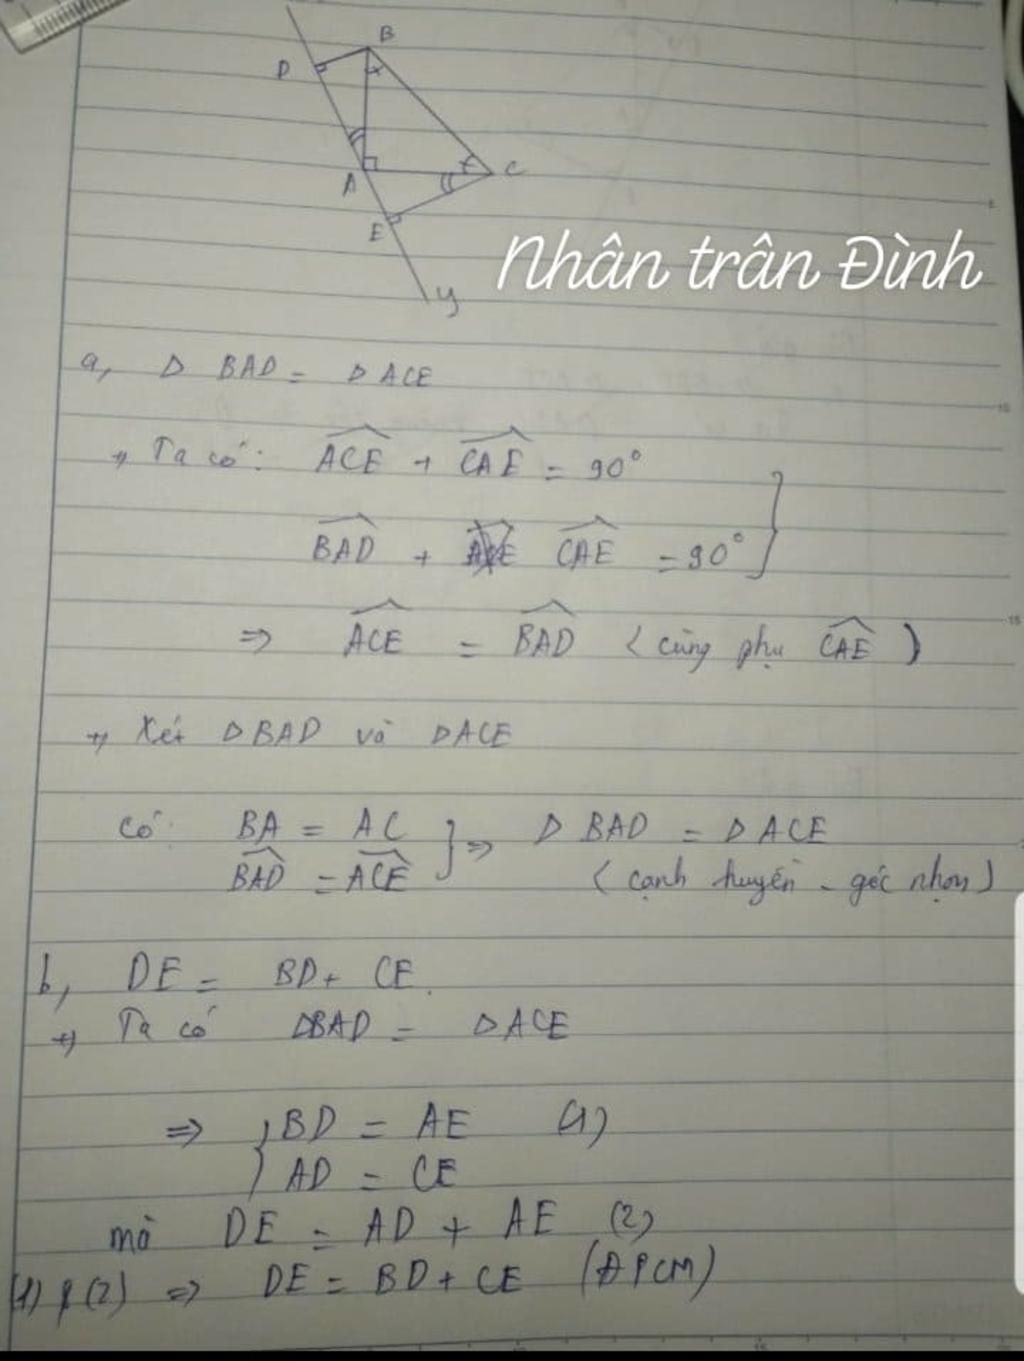 B
D
A
C
E
y
Nhân trân Đình
a, Δ BAD = Δ ACE
Ta có: ACE + CAE = 90°
BAD + CAE = 90°
⇒ ACE = BAD (cùng phụ CAE)
Xét Δ BAD và Δ ACE
có: BA = AC } ⇒ Δ BAD = Δ ACE
BAD = ACE (cạnh huyền - góc nhọn)
b, DE = BD + CE.
Ta có Δ BAD = Δ ACE
⇒ { BD = AE (1)
AD = CE
mà DE = AD + AE (2)
(1) & (2) ⇒ DE = BD + CE (ĐPCM)